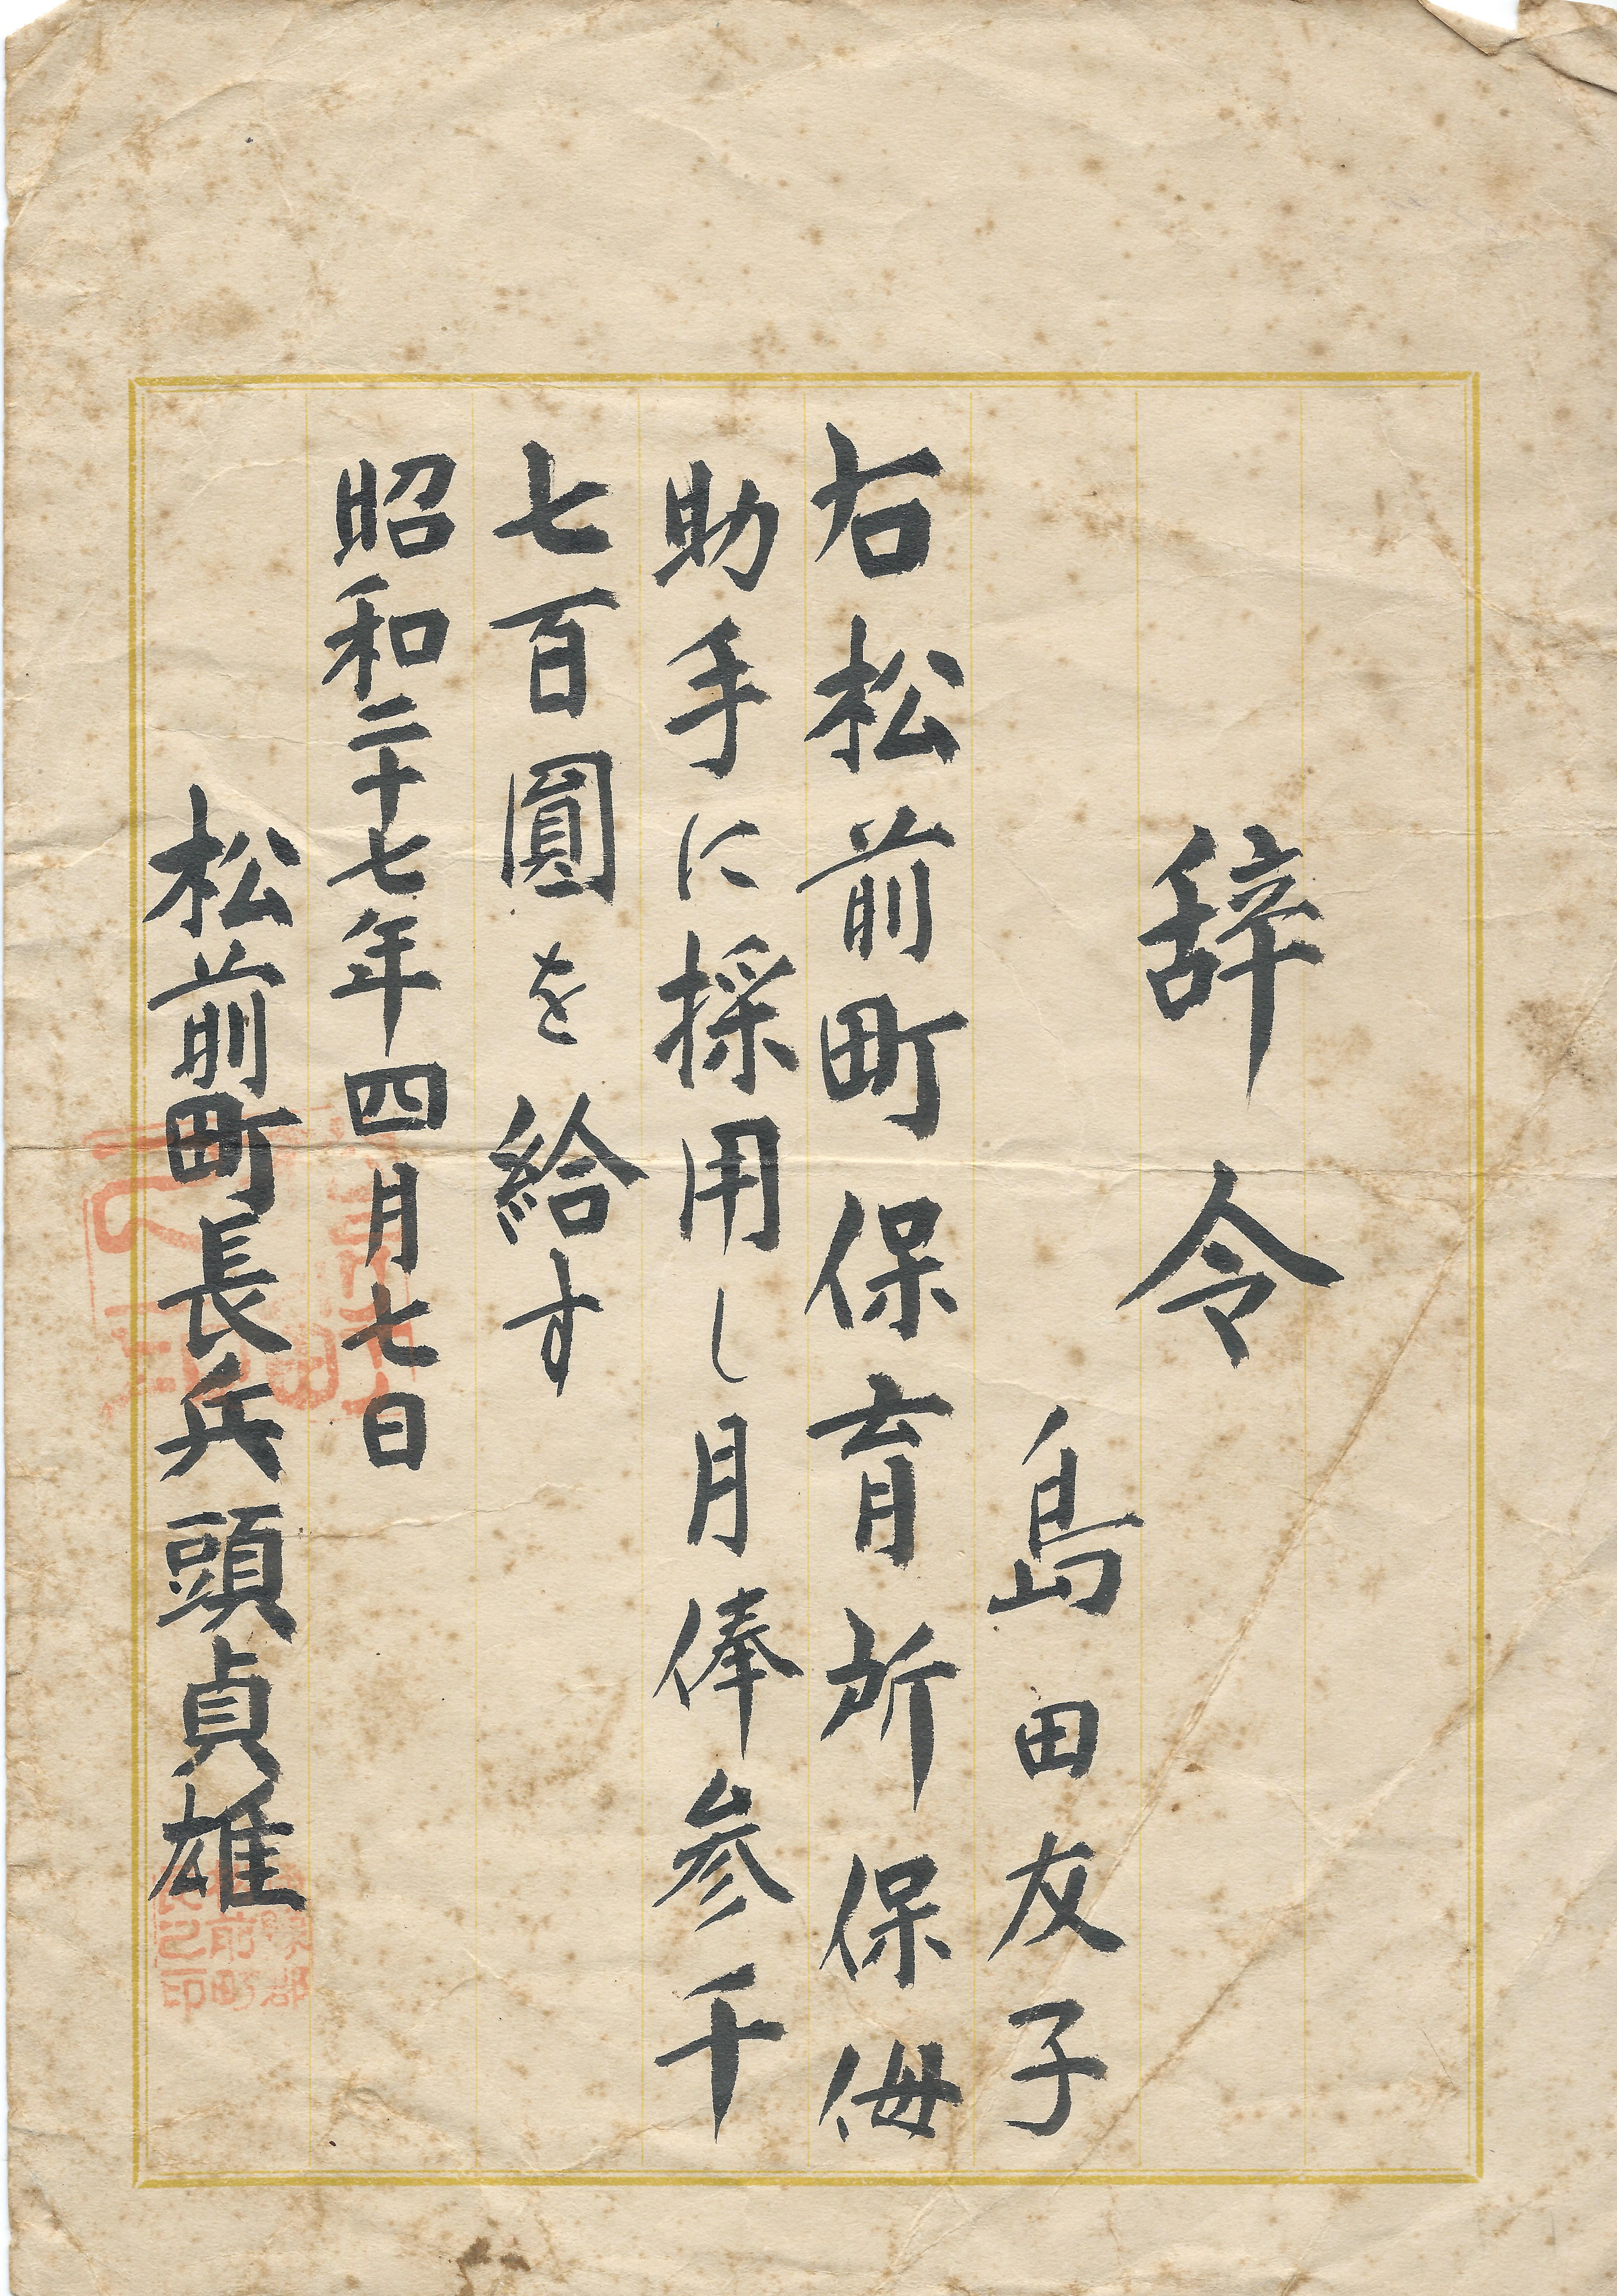 辞令
島田友子
右松前町保育所保侮
助手に採用し月俸参千
七百圓を給す
昭和二十七年四月七日
松前町長兵頭貞雄